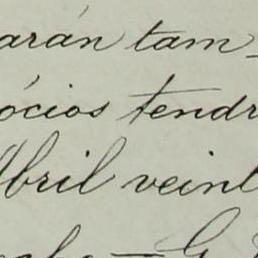 arán tam-
ócios tendr
Abril veint